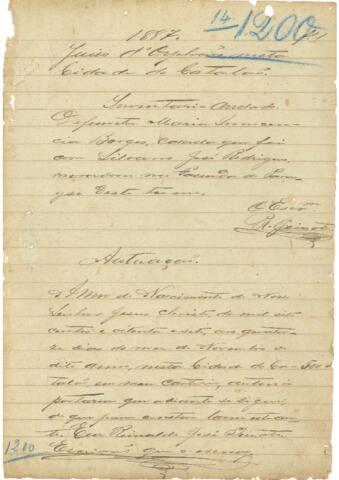 1887.
14-1200
Juizo d'Orphãos nesta
Cidade de Catalão
Inventario
Defunta Maria Innocen-
cia Borges, casada que foi
com Silvano José Rodrigues,
moradora na Fasenda
que deste termo.
O Escrm
Autuação.
Anno do Nascimento de Nosso
Senhor Jesus Christo de mil oito
centos e oitenta e sete, aos quator-
ze dias do mez de Novembro do
dito anno, nesta Cidade de Ca-
talão, em meu cartorio, autoei a
portaria que adiante se segue;
do que para constar lavro esta
Eu Reinaldo José
Escrivão que o escrevy
1210